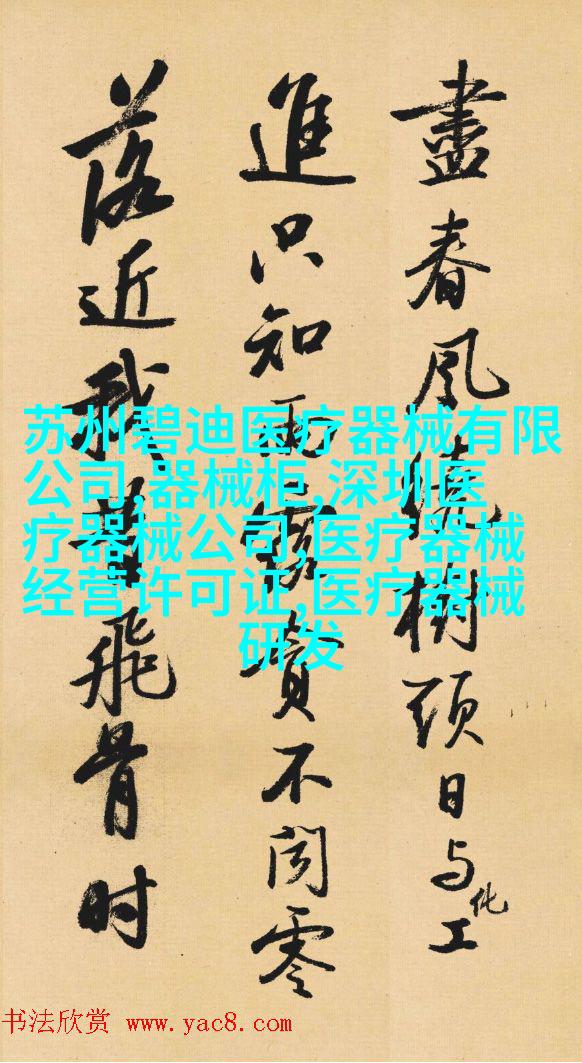 盡春風繞樹頭日与化工
進只知雨露貪不聞零
落近我昔飛骨时
苏州碧迪医疗器械有限
公司,器械柜,深圳医
疗器械公司,医疗器械
经营许可证,医疗器械
研发
书法欣赏 www.yac8.com